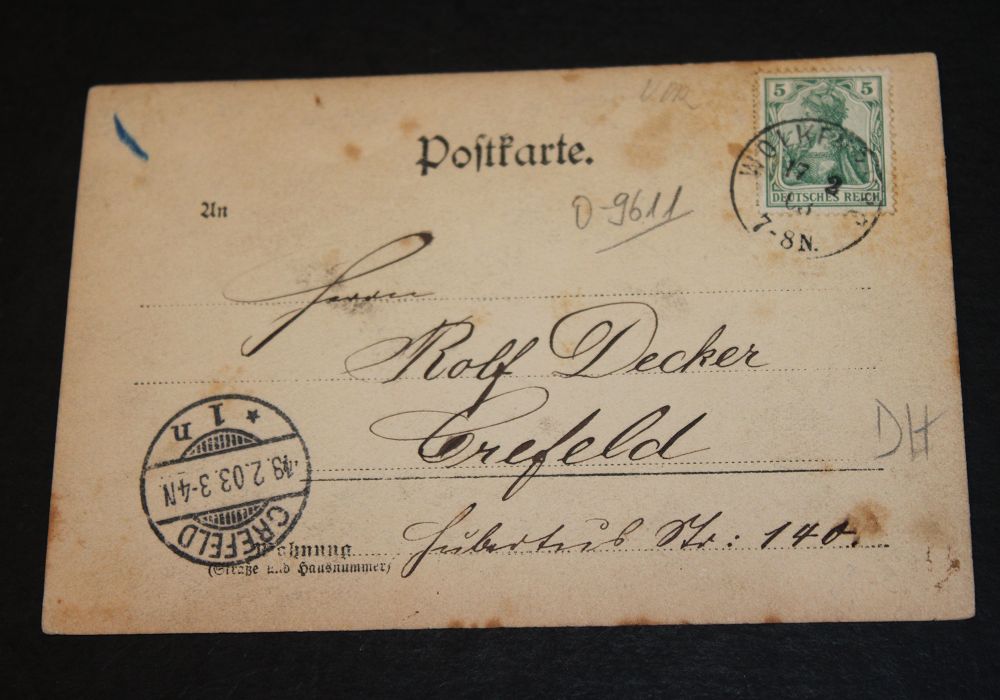 5 5
DEUTSCHES REICH
17 2
03
7-8 N.
Postkarte.
An
O-9611
Herrn
Rolf Decker
Crefeld
DH
CREFELD
18.2.03.3-4N
* 1 n
Wohnung
(Straße und Hausnummer)
Hubertus Str: 140.